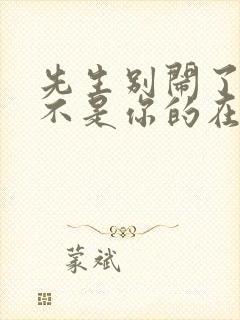 先生别闹了
不是你的在
蒙斌